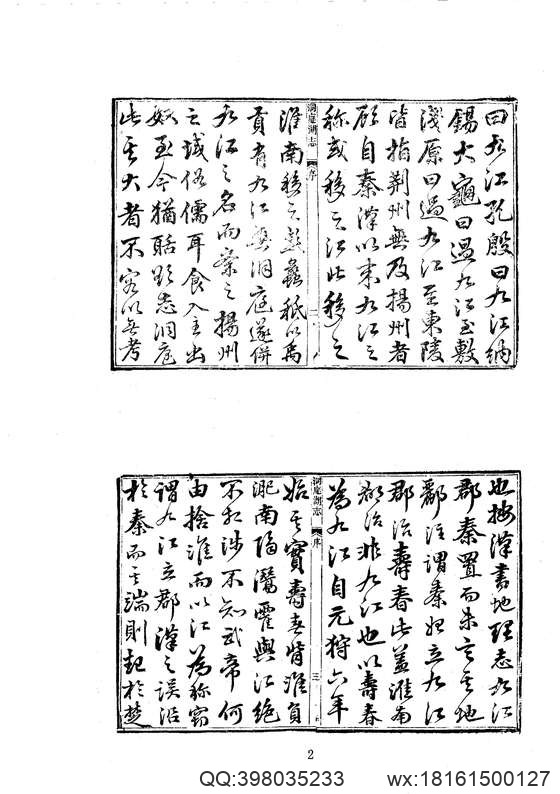 曰九江孔殷曰九江納
錫大龜曰過九江至敷
淺原曰過九江至東陵
皆指荆州無及揚州者
顧自秦漢以來九江之
稱或移之江北移之
洞庭湖志
序
二
淮南移之彭蠡秪以禹
貢有九江無洞庭遂併
九江之名而棄之揚州
之域俗儒耳食入主出
奴至今猶聒欲志洞庭
此其大者不容以無考
也按漢書地理志九江
郡秦置而未言其地
酈注謂秦始立九江
郡治壽春此蓋淮南
郡治非九江也以壽春
為九江自元狩六年
洞庭湖志
序
三
始其實壽春背淮負
淝南隔灊霍與江絶
不相涉不知武帝何
由捨淮而以江為稱竊
謂九江立郡漢之誤沿
於秦而其端則起於楚
2
QQ:398035233
wx:18161500127